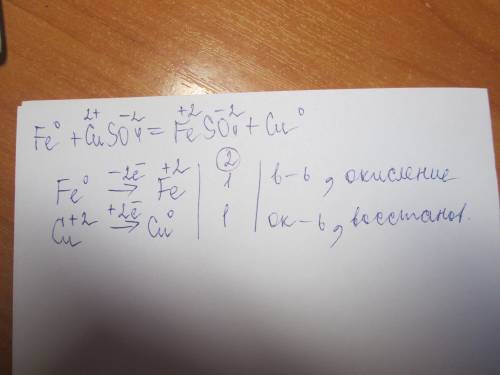 Fe⁰ + Cu²⁺SO₄⁻² = Fe⁺²SO₄⁻² + Cu⁰
Fe⁰ −2ē → Fe⁺² | ② 1 | в-ь, окисление
Cu⁺² +2ē → Cu⁰ | 1 | ок-ь, восстанов.